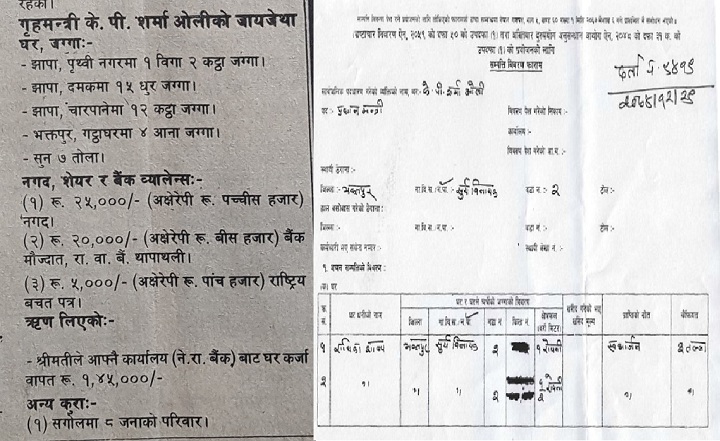 रहेको।
गृहमन्त्री के. पी. शर्मा ओलीको जायजेथा
घर, जग्गा:-
- झापा, पृथ्वी नगरमा १ विगा २ कट्ठा जग्गा।
- झापा, दमकमा १५ धुर जग्गा।
- झापा, चारपानेमा १२ कट्ठा जग्गा।
- भक्तपुर, गठ्ठाघरमा ४ आना जग्गा।
- सुन ७ तोला।
नगद, शेयर र बैंक व्यालेन्स:-
(१) रू. २५,०००/- (अक्षेरेपी रू. पच्चीस हजार)
नगद।
(२) रू. २०,०००/- (अक्षेरेपी रू. बीस हजार) बैंक
मौज्दात, रा. वा. बैं. थापाथली।
(३) रू. ५,०००/- (अक्षेरेपी रू. पांच हजार) राष्ट्रिय
बचत पत्र।
ऋण लिएको:-
- श्रीमतीले आफ्नै कार्यालय (ने.रा. बैंक) बाट घर कर्जा
वापत रू. १,४५,०००/-
अन्य कुरा:-
(१) सगोलमा ८ जनाको परिवार।
(भ्रष्टाचार निवारण ऐन, २०५९ को दफा ५० को उपदफा (१) तथा अख्तियार दुरुपयोग अनुसन्धान आयोग ऐन, २०४८ को दफा ३१ क. को
उपदफा (१) को प्रयोजनको लागि
सम्पत्ति विवरण फाराम
सार्वजनिक पदधारण गरेको व्यक्तिको नाम, थर:- के. पी. शर्मा ओली
पद :- प्रधान मन्त्री
विवरण पेश गरेको निकाय :-
कार्यालय :-
विवरण पेश गरेको आ.व. :-
स्थायी ठेगाना :-
जिल्ला:- भक्तपुर गा.वि.स./न.पा. :- सुर्य विनायक वडा नं :- २ टोल :-
हाल बसोबास गरेको ठेगाना :-
जिल्ला :- गा.वि.स. :- वडा नं :- टोल :-
कर्मचारी भए संकेत नम्बर :-
स्थायी लेखा नं. :-
घर र घरले चर्चेको जग्गाको विवरण
क्र. सं. घर धनीको नाम जिल्ला गा.वि.स./न.पा. वडा नं कित्ता नं. क्षेत्रफल (वर्ग मिटर) खरिद गरेको भए खरिद मूल्य प्राप्तिको स्रोत कैफियत
१ राधिका शाक्य भक्तपुर सुर्य विनायक २ १ रोपनी स्वआर्जन
२ " " " २ "